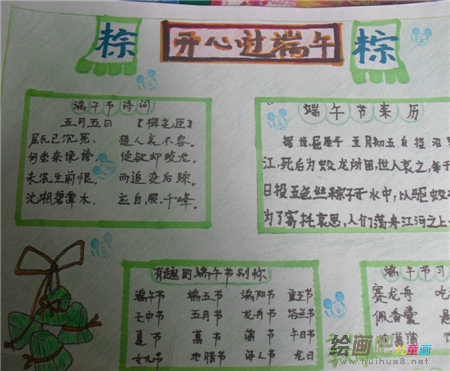 粽 开心过端午 粽
端午节诗词
五月五日 《梅尧臣》
屈氏已沉死, 楚人哀不容。
何尝奈谗谤, 徒欲却蛟龙。
未泯生前恨, 而追没后踪。
沅湘碧潭水, 应自照千峰。
端午节来历
据说屈原于五月初五自投汨
江,死后为蛟龙所困,世人哀之,每于
日投五色丝粽子于水中,以驱蛟
为了寄托哀思,人们荡舟江河之上
有趣的端午节别称
端午节 端五节 端阳节 重五节
天中节 五月节 龙舟节 浴兰节
夏节 菖节 蒲节 午日节
女儿节 地腊节 诗人节 龙日
端午节习
赛龙舟 吃
佩香囊 悬
绘画吧 儿童画
www.huihua8.net